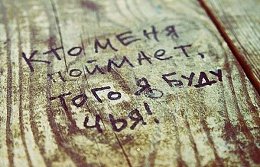 Кто меня
поймает,
того я буду
чья!